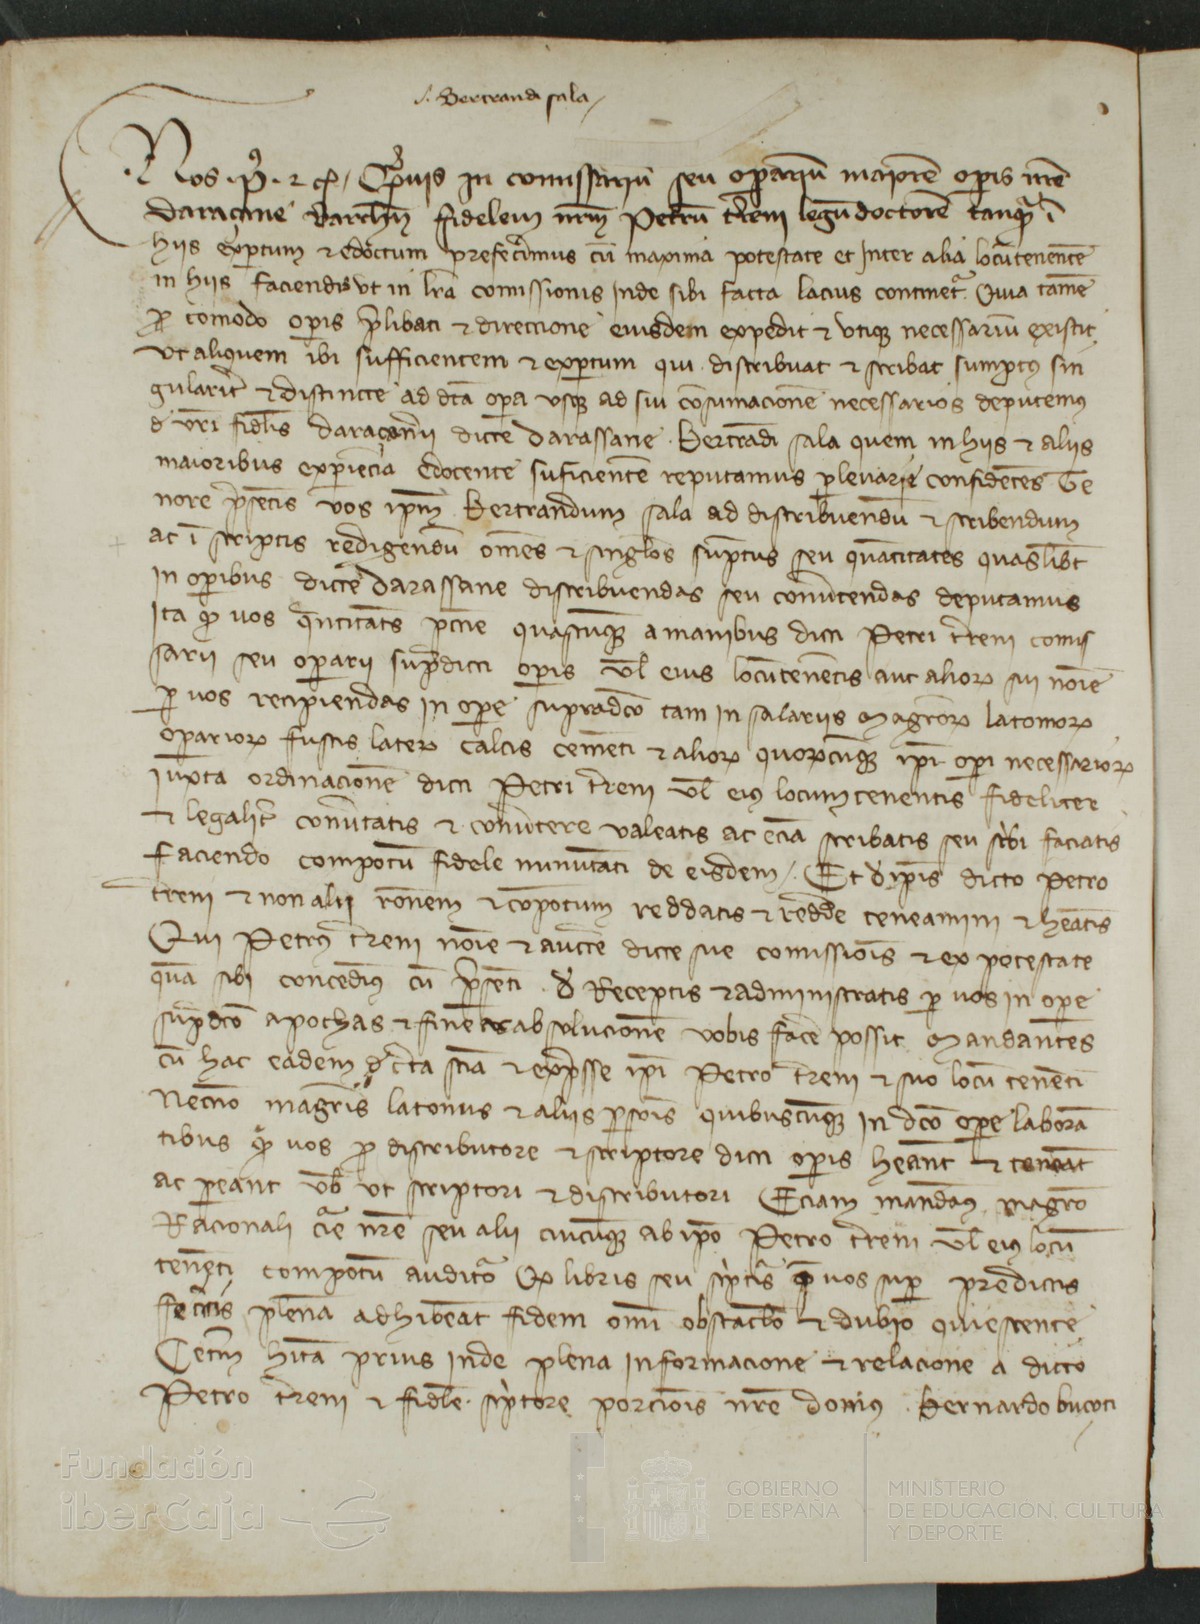 .s. Bertrandi sala
Nos .P. et cet. Quamvis in comissarium seu operarium maiorem operis nre
daraçane Barchne fidelem nrm Petrum terreni legum doctorem tanquam in
hiis expertum et edoctum prefecerimus cum maxima potestate et inter alia locumtenentem
in hiis faciendis ut in lra comissionis inde sibi facta lacius continetur. Quia tamen
pro comodo operis prelibati et direccione eiusdem expedit et utique necessarium existit
ut aliquem ibi sufficientem et expertum qui distribuat et scribat sumptus sin
gulariter et distincte ad dcta opera usque ad sui consumacionem necessarios deputemus
d vri fidelis daraçanerii dicte darassane Bertrandi sala quem in hiis et aliis
maioribus experiencia edocente suficientem reputamus plenarie confidentes Te
nore presentis vos ipsum Bertrandum sala ad distribuendum et scribendum
ac in scriptis redigendum omnes et singulos sumptus seu quantitates quaslibet
in operibus dicte darassane distribuendas seu convertendas deputamus
Ita quod vos quantitates peccunie quascumque a manibus dicti Petri terreni comis
sarii seu operarii supradicti operis vel eius locumtenentis aut aliorum sui nomine
per vos recipiendas in opere supradicto tam in salariis magistrorum latomorum
operariorum fustis laterum calcis cementi et aliorum quorumcumque ipsi operi necessariorum
iuxta ordinacionem dicti Petri terreni vel eius locumtenentis fideliter
et legaliter convertatis et convertere valeatis ac eciam scribatis seu scribi faciatis
faciendo compotum fidele minutati de eisdem. Et de ipsis dicto Petro
terreni et non alii racionem et compotum reddatis et reddere teneamini et habeatis
Qui Petrus terreni nomine et auctoritate dicte sue comissionis et ex potestate
quam sibi concedimus cum presenti de receptis et administratis per vos in opere
supradicto apochas et fines absolucionem vobis facere possit. Mandantes
cum hac eadem de certa scia et expresse ipsi Petro terreni et suo locumtenenti
Necnon magistris latomis et aliis personis quibuscumque in dicto opere laboran
tibus quod vos pro distributore et scriptore dicti operis habeant et teneant
ac pareant vobis ut scriptori et distributori Eciam mandamus magistro
Racionali curie nre seu alii cuicumque ab ipso Petro terreni vel eius locum
tenenti compotum audituro quod libris seu scriptis que vos super predictis
feceritis plenam adhibeat fidem omni obstaculo et dubio quiescente
Ceterum habita prius inde plena informacione et relacione a dicto
Petro terreni et fideli scriptore porcionis nre domus Bernardo bucoti
Fundación
iberCaja
GOBIERNO
DE ESPAÑA
MINISTERIO
DE EDUCACIÓN, CULTURA
Y DEPORTE